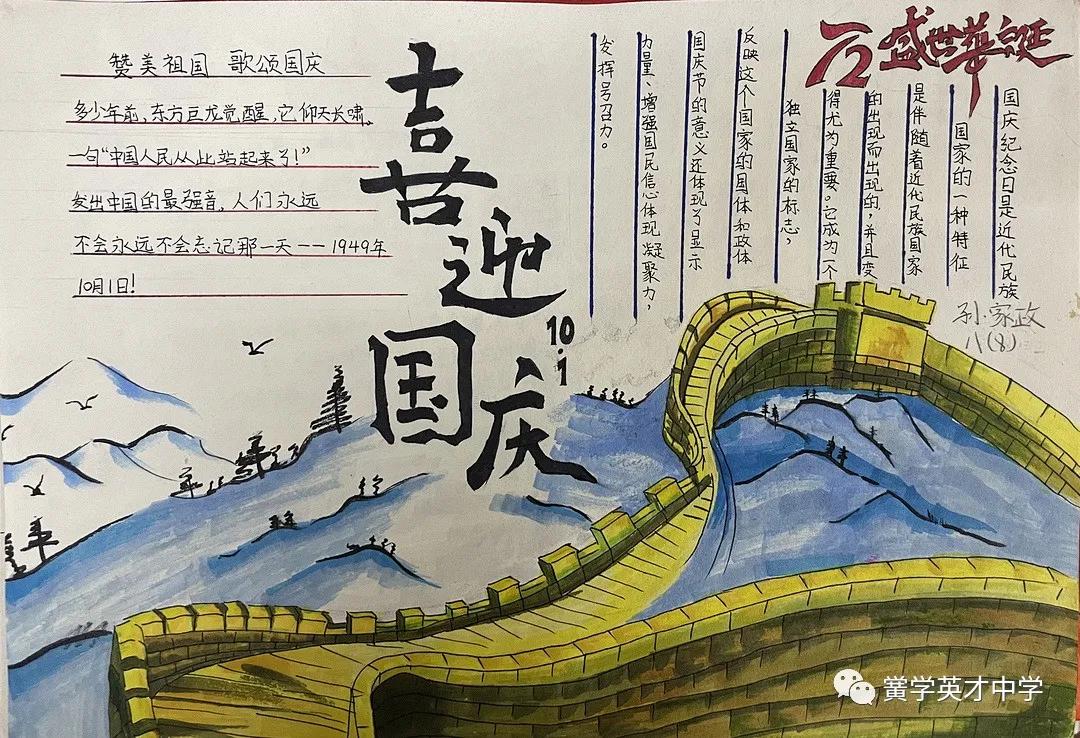 赞美祖国 歌颂国庆
多少年前,东方巨龙觉醒,它仰天长啸,
一句“中国人民从此站起来了!”
发出中国的最强音,人们永远
不会永远不会忘记那一天——1949年
10月1日!
喜
迎
国
庆
10.1
72 盛世華诞
国庆纪念日是近代民族
国家的一种特征
是伴随着近代民族国家
的出现而出现的,并且变
得尤为重要。它成为一个
独立国家的标志,
反映这个国家的国体和政体
国庆节的意义还体现了显示
力量、增强国民信念体现凝聚力,
发挥号召力。
孙家政
八(8)
黉学英才中学